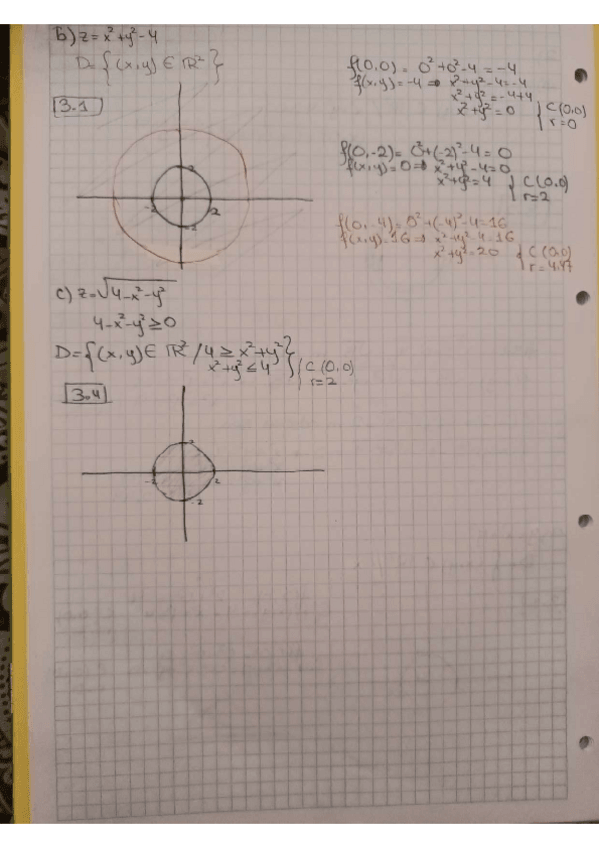 b) z = x² + y² - 4
D = { (x,y) ∈ ℝ² }
3.1
f(0,0) = 0² + 0² - 4 = -4
f(x,y) = -4 ⇒ x² + y² - 4 = -4
x² + y² = -4 + 4
x² + y² = 0 { C(0,0)
r = 0
f(0,-2) = 0² + (-2)² - 4 = 0
f(x,y) = 0 ⇒ x² + y² - 4 = 0
x² + y² = 4 { C(0,0)
r = 2
f(0,-4) = 0² + (-4)² - 4 = 16
f(x,y) = 16 ⇒ x² + y² - 4 = 16
x² + y² = 20 { C(0,0)
r = 4.47
2
-2 2
-2
c) z = √4 - x² - y²
4 - x² - y² ≥ 0
D = { (x,y) ∈ ℝ² / 4 ≥ x² + y² }
x² + y² ≤ 4 { C(0,0)
r = 2
3.4
2
-2 2
-2